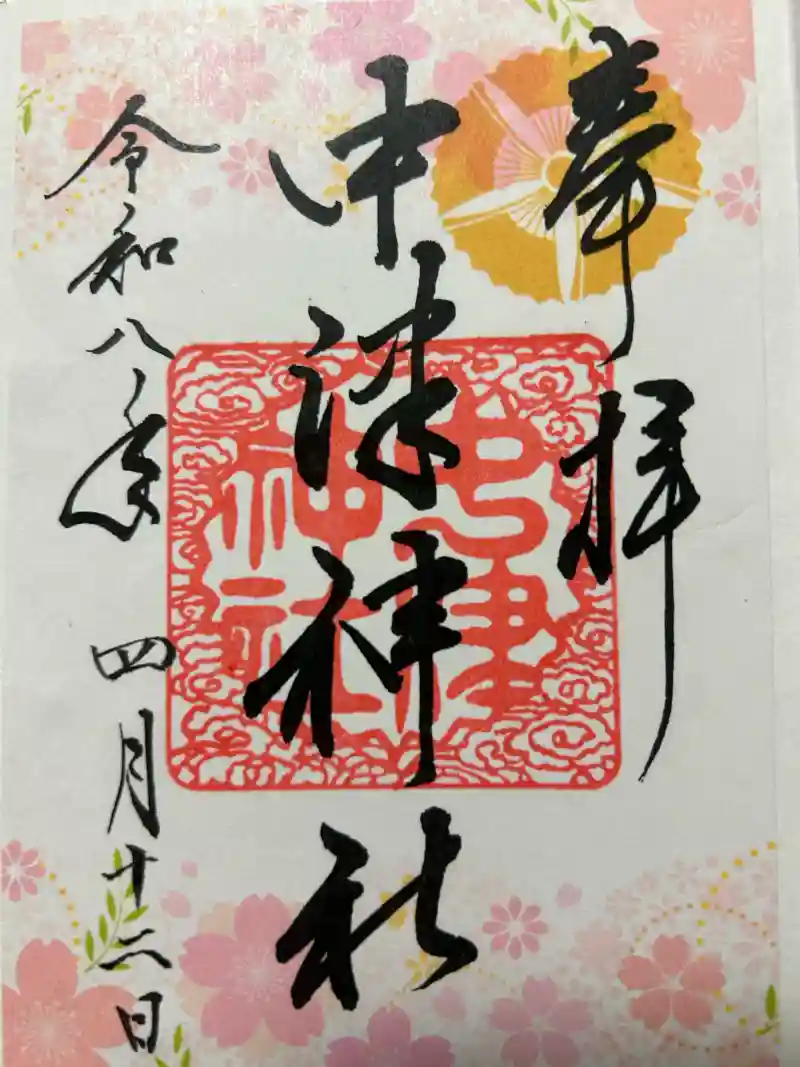 奉拝
中津神社
令和八年 四月十二日
津
神社